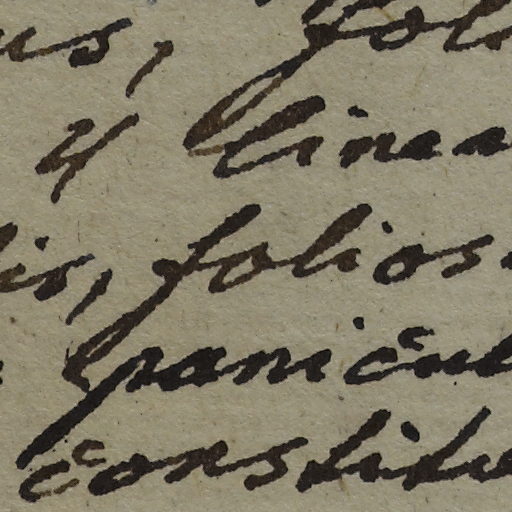 us, fol
y linea
lis, folios
panicul
constitu